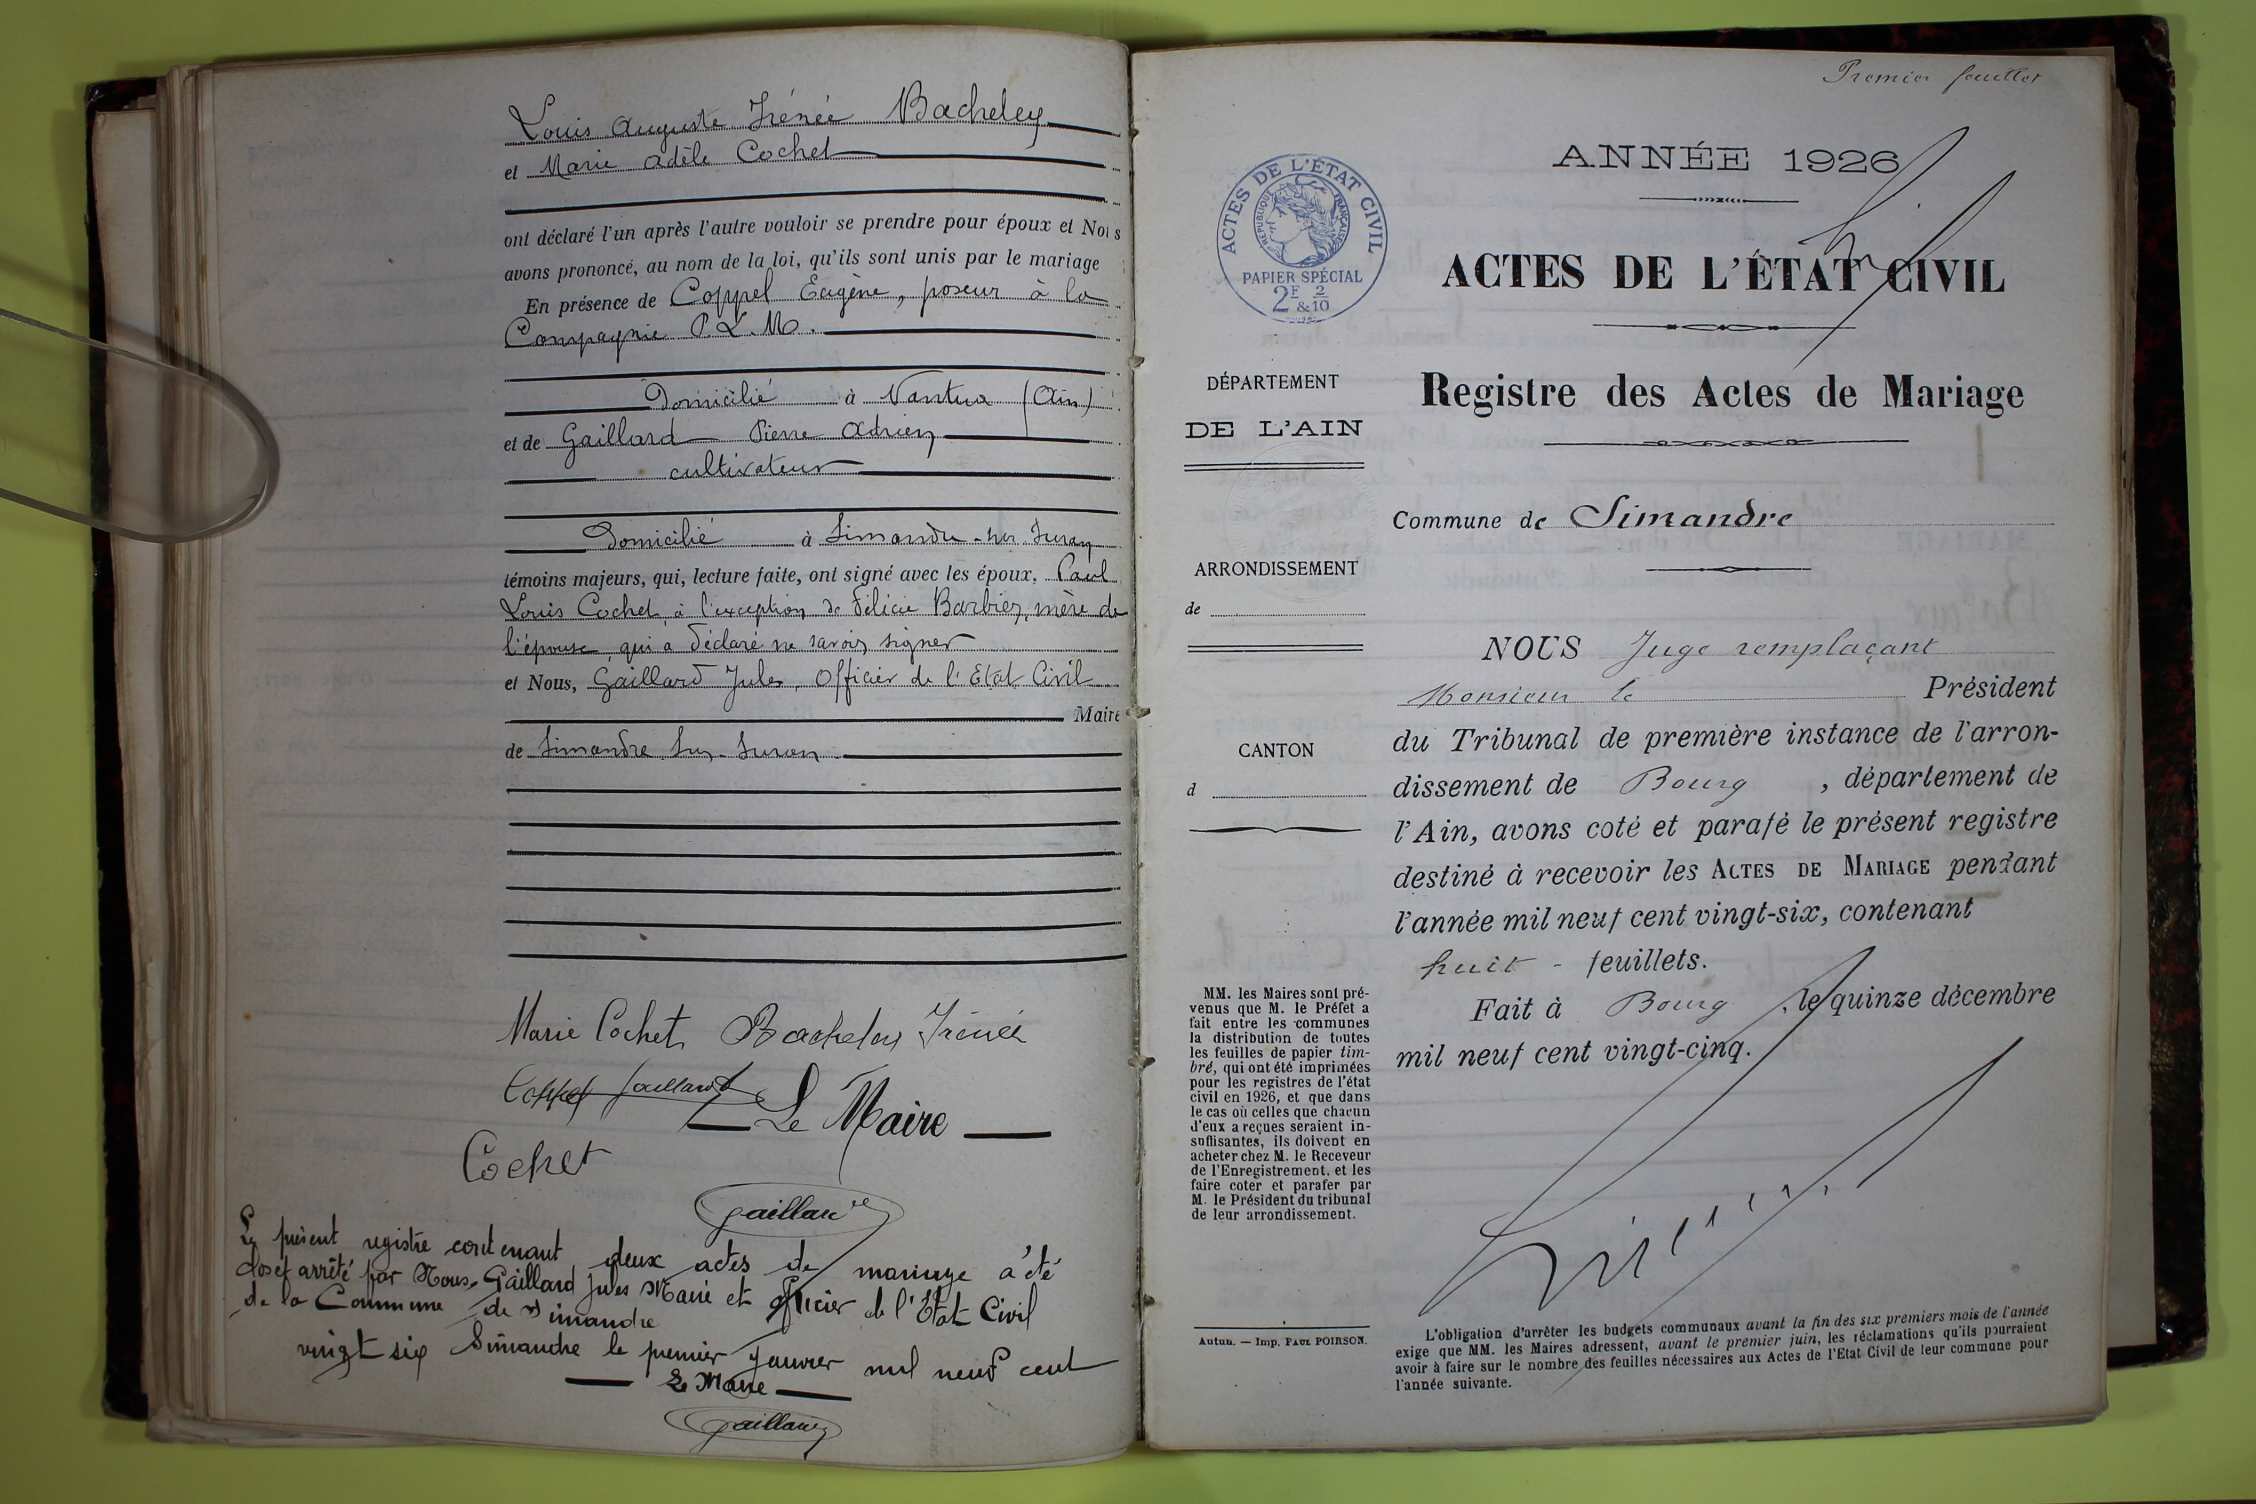 Louis Auguste Irénée Bacheley
et Marie Adèle Cochet
ont déclaré l'un après l'autre vouloir se prendre pour époux et Nous
avons prononcé, au nom de la loi, qu'ils sont unis par le mariage
En présence de Coppel Eugène, poseur à la
Compagnie P.L.M.
Domicilié à Nantua (Ain)
et de Gaillard Pierre Adrien
cultivateur
Domicilié à Simandre-sur-Suran
témoins majeurs, qui, lecture faite, ont signé avec les époux, Paul
Louis Cochet, à l'exception de Félicie Barbier, mère de
l'épouse, qui a déclaré ne savoir signer
et Nous, Gaillard Jules, Officier de l'Etat Civil
Maire
de Simandre sur Suran
Marie Cochet Bacheley Irénée
Coppel Gaillard
Le Maire
Cochet
Gaillard
Le présent registre contenant deux actes de mariage a été
clos et arrêté par Nous, Gaillard Jules Maire et Officier de l'État Civil
de la Commune de Simandre
Simandre le premier Janvier mil neuf cent
vingt six
Le Maire
Gaillard
Premier feuillet
ANNÉE 1926
ACTES DE L'ÉTAT CIVIL
RÉPUBLIQUE FRANÇAISE
PAPIER SPÉCIAL
2F & 2/10
ACTES DE L'ÉTAT CIVIL
Registre des Actes de Mariage
DÉPARTEMENT
DE L'AIN
Commune de Simandre
ARRONDISSEMENT
de
CANTON
d
NOUS Juge remplaçant
Monsieur le Président
du Tribunal de première instance de l'arron-
dissement de Bourg, département de
l'Ain, avons coté et parafé le présent registre
destiné à recevoir les ACTES DE MARIAGE pendant
l'année mil neuf cent vingt-six, contenant
huit - feuillets.
Fait à Bourg, le quinze décembre
mil neuf cent vingt-cinq.
MM. les Maires sont pré-
venus que M. le Préfet a
fait entre les communes
la distribution de toutes
les feuilles de papier tim-
bré, qui ont été imprimées
pour les registres de l'état
civil en 1926, et que dans
le cas où celles que chacun
d'eux a reçues seraient in-
suffisantes, ils doivent en
acheter chez M. le Receveur
de l'Enregistrement, et les
faire coter et parafer par
M. le Président du tribunal
de leur arrondissement.
Autun. — Imp. PAUL POIRSON.
L'obligation d'arrêter les budgets communaux avant la fin des six premiers mois de l'année
exige que MM. les Maires adressent, avant le premier juin, les réclamations qu'ils pourraient
avoir à faire sur le nombre des feuilles nécessaires aux Actes de l'Etat Civil de leur commune pour
l'année suivante.